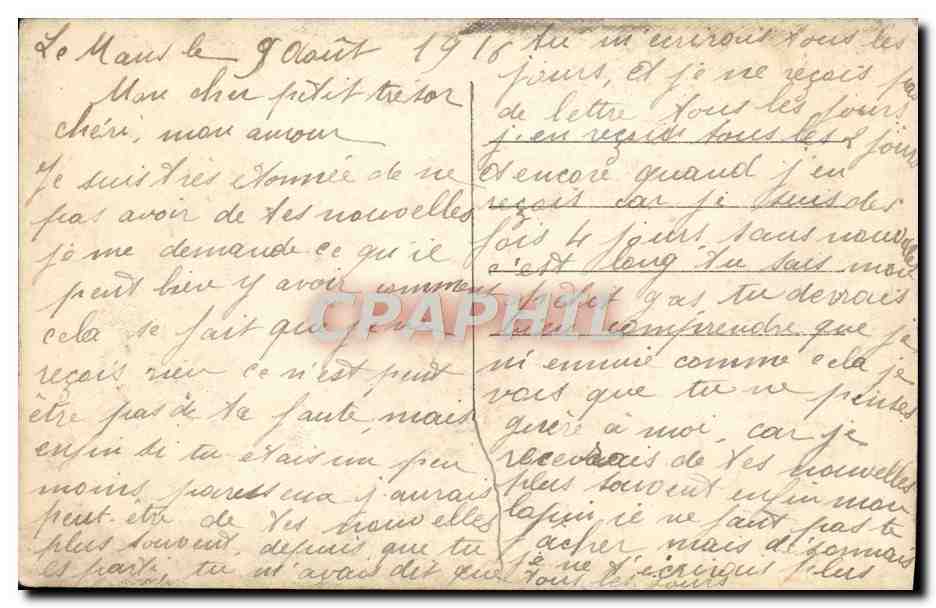 Le Mans le 9 Août 1916
Mon cher petit trésor
chéri, mon amour
Je suis très étonnée de ne
pas avoir de tes nouvelles
je me demande ce qu'il
peut bien y avoir comment
cela se fait que je ne
reçois rien ce n'est peut
être pas de ta faute, mais
enfin si tu étais un peu
moins paresseux j'aurais
peut-etre de tes nouvelles
plus souvent, depuis que tu
es parti, tu m'avais dit que
tu m'ecrirais tous les
jours, et je ne reçois pas
de lettre tous les jours
j'en reçois tous les 2 jours
et encore quand j'en
reçois car je suis des
fois 4 jours sans nouvelles
c'est long tu sais mon
petit gas tu devrais
bien comprendre que je
m'ennuie comme cela je
vois que tu ne penses
guère à moi, car je
recevrais de tes nouvelles
plus souvent enfin mon
lapin je ne faut pas te
facher, mais désormais
je ne t'écrirais plus
tous les jours
CPARPHIL